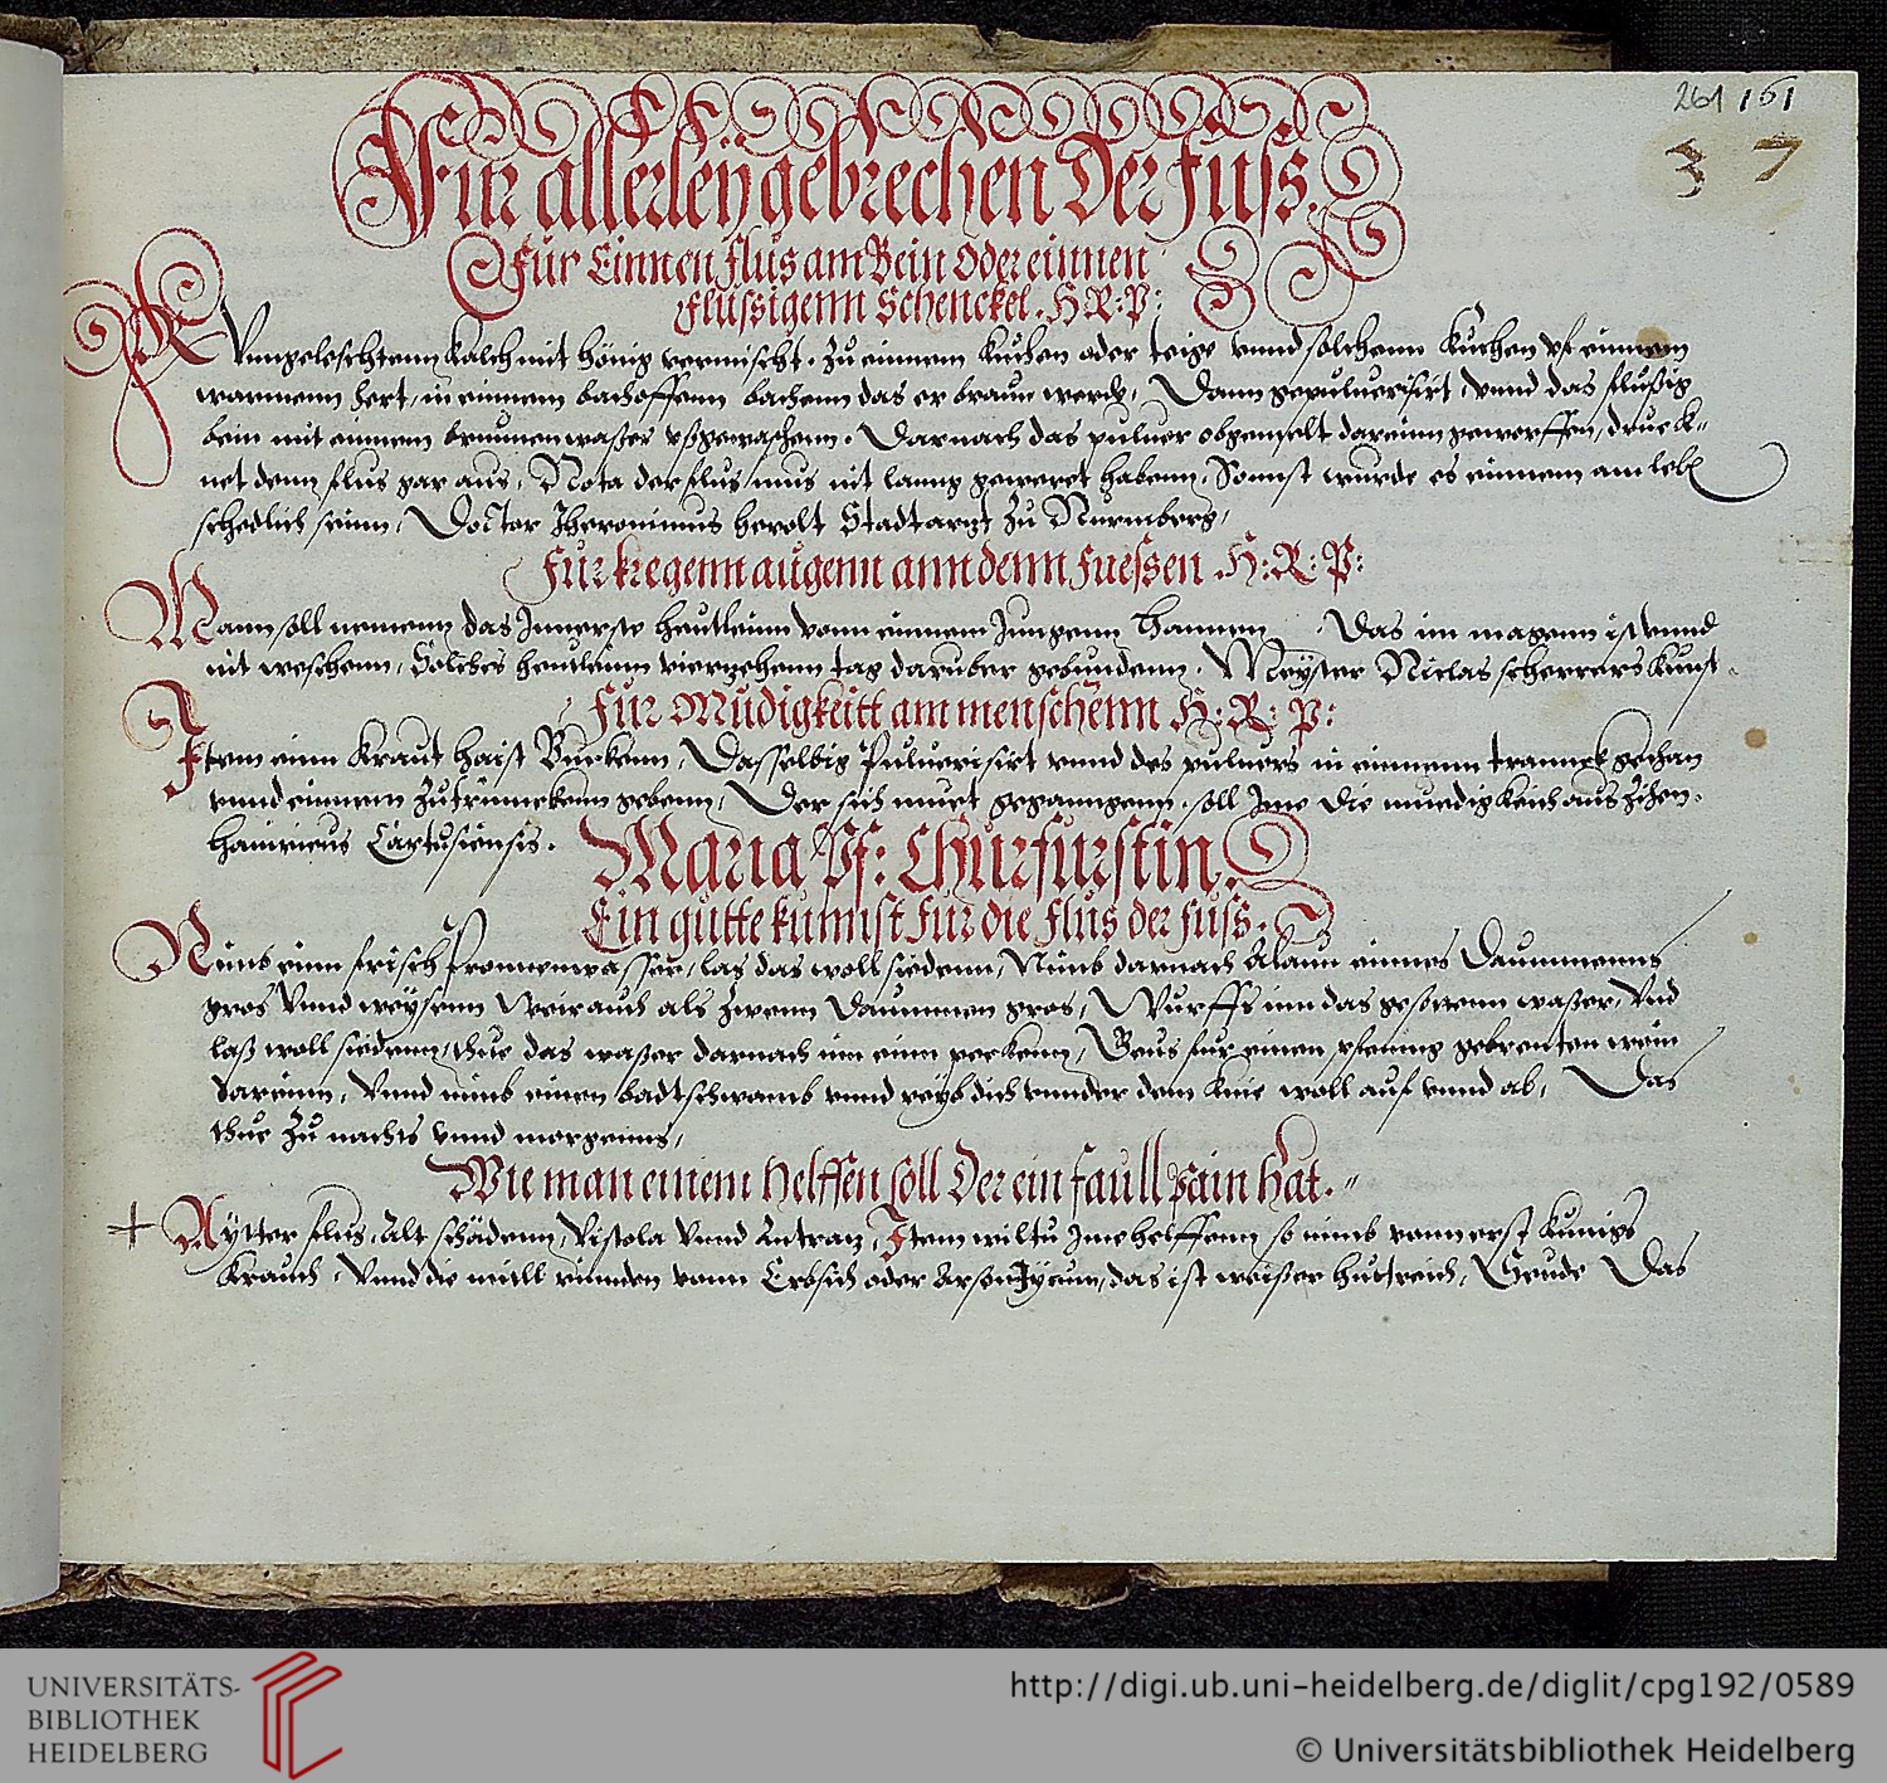 261 161
3 7
Fur allerleÿ gebrechen Der fuss.
Fur Einnen flus am Bein oder einnen
flussigenn Schenckel. H: R: P:
R Vnngeleschtenn kalch mit hönig vermischt. zu einnem kuchen oder teige vnnd solchenn kuchen vf einnem
warmenn hert, in einnem bachoffenn bachenn das er braun werde, Dann gepuluerisirt, vnnd das flußig
bein mit einnem brunnenwaßer vßgewaschenn. Darnach das puluer obgemelt dareinn geworffen, druck„
net denn flus gar aus, Nota der flus mus nit lanng geweret habenn, Sonnst wurde es einnem am leb
schedlich seinn, Doctor Iheronimus herolt Stadtarzt zu Nurmberg,
Fur kregenn augenn ann denn fuessen H: R: P:
Mann soll nemenn das Innerste heutleinn vonn einnem Jungenn Hannen Das im magenn ist vnnd
nit weschenn, Solches heutleinn vierzehenn tag daruber gebundenn. Meÿster Niclas scherrers kunst.
Fur Mudigkeitt am menschenn H: R: P:
Item einn kraut haist Buckenn, Dasselbig puluerisirt vnnd des puluers in einnem tranneck gethan
vnnd einnem zutrinnckenn gebenn, Der sich muet geganngenn, soll Ime die muedigkeich aus zihen.
hainricus Cartusiensis.
Maria Pf: Churfurstin.
Ein gutte kunnst fur die flus der fuss.
Nimb einn frisch Pronnenwasser, las das woll siedenn, Nimb darnach Alaun einnes Daummenns
gros Vnnd weÿsenn Weirauch als zwenn Daummen gros, Wurffs inn das gesottenn waßer, Vnd
laß woll siedenn, thue das waßer darnach inn einn peckenn, Geus fur einen pfening gebrenten wein
dareinn, Vnnd nimb einen badtschwamb vnnd reÿb dich vnnder dem knie woll auf vnnd ab, Das
thue zu nachts vnnd morgenns,
Wie man einem Helffen soll Der ein faull pain hat.
Aÿtter flus, Alt schädenn, Vistola Vnnd Antraz, Item wiltu Ime helffenn so nimb vonn erst kunigs
krauch, Vnnd die mitll rinnden vonn Erbsich oder das ist weißer huttreich, Das
UNIVERSITÄTS-
BIBLIOTHEK
HEIDELBERG
http://digi.ub.uni-heidelberg.de/diglit/cpg192/0589
© Universitätsbibliothek Heidelberg